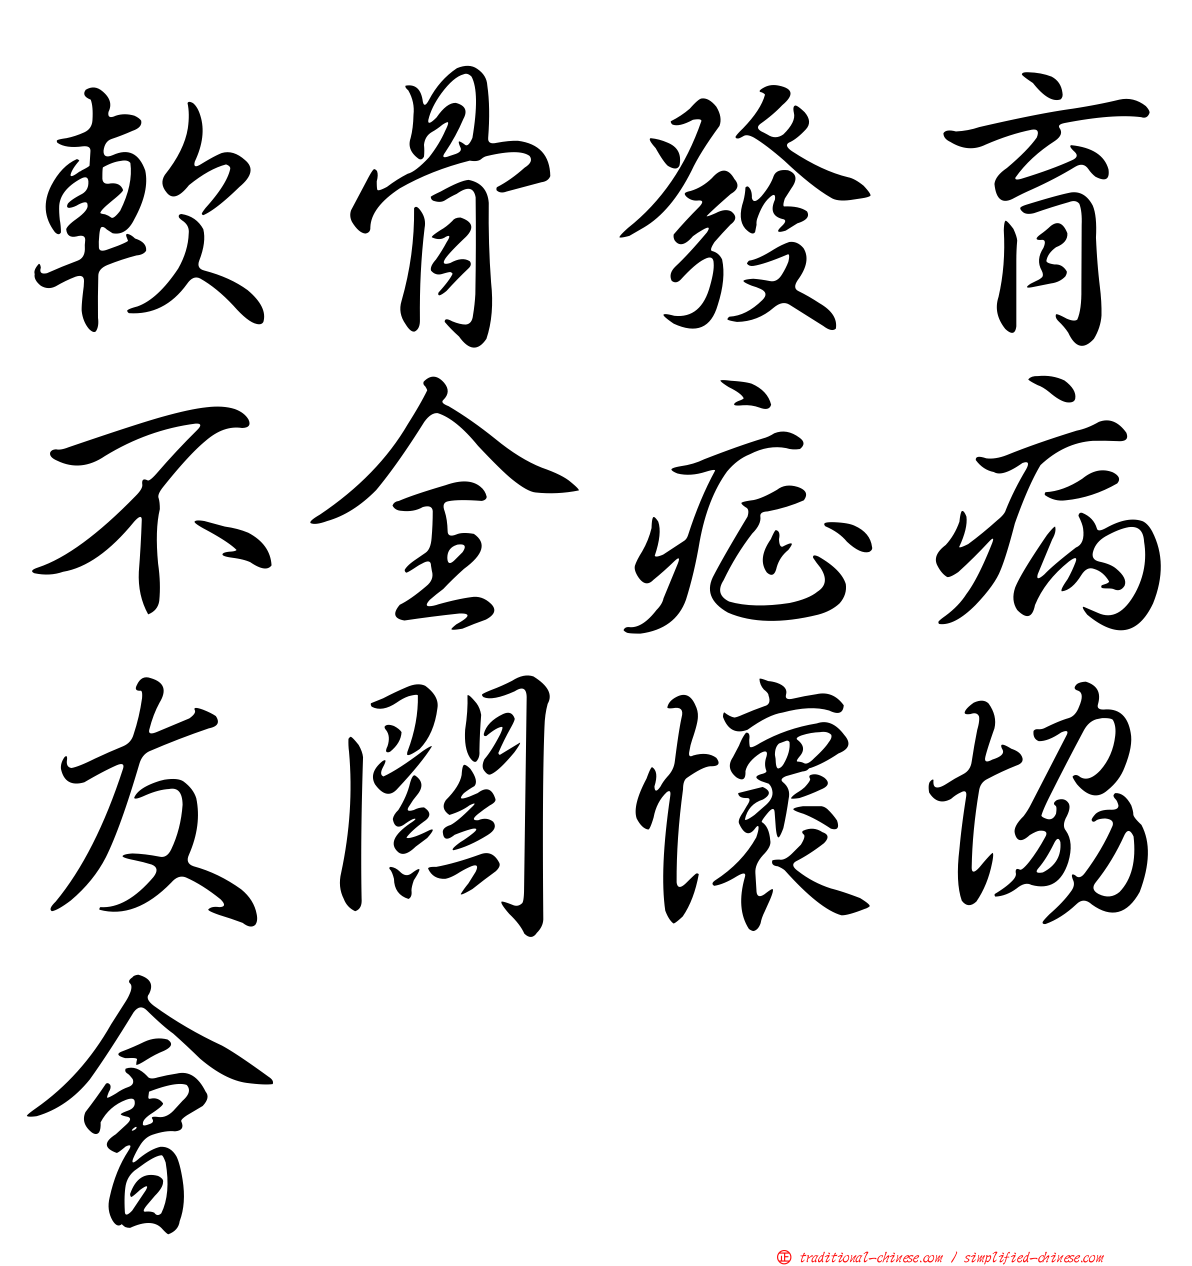 軟骨發育
不全症病
友關懷協
會
㊣ traditional-chinese.com / simplified-chinese.com